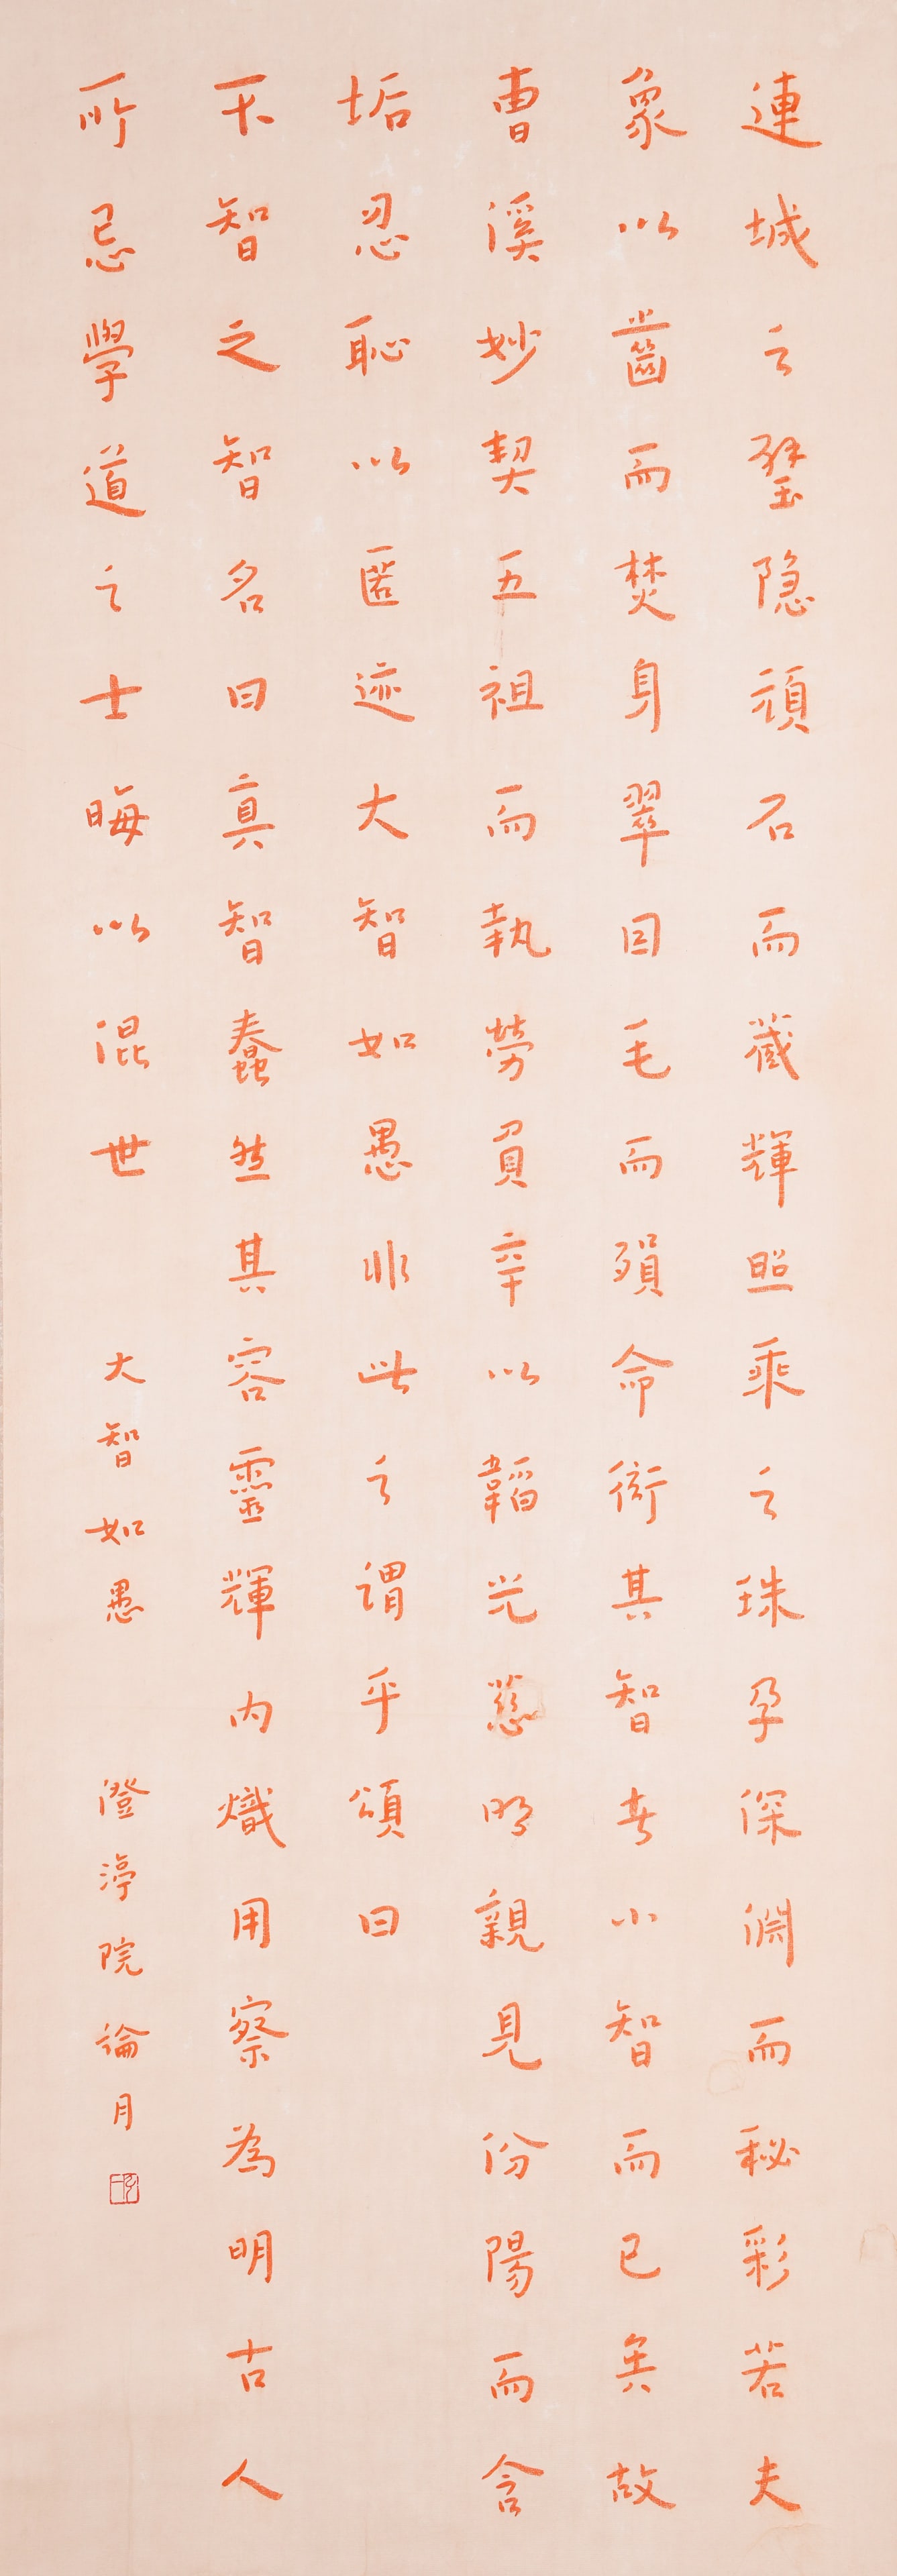 連城之璧隐頑石而藏輝照乘之珠孕深淵而秘彩若夫
象以齒而焚身翠因毛而殞命衒其智者小智而已矣故
曹溪妙契五祖而執勞負辛以韜光慈明親見份陽而含
垢忍恥以匿迹大智如愚非此之謂乎頌曰
不智之智名曰真智蠢然其容靈輝内熾用察為明古人
所忌學道之士晦以混世
大智如愚
澄渟院論月